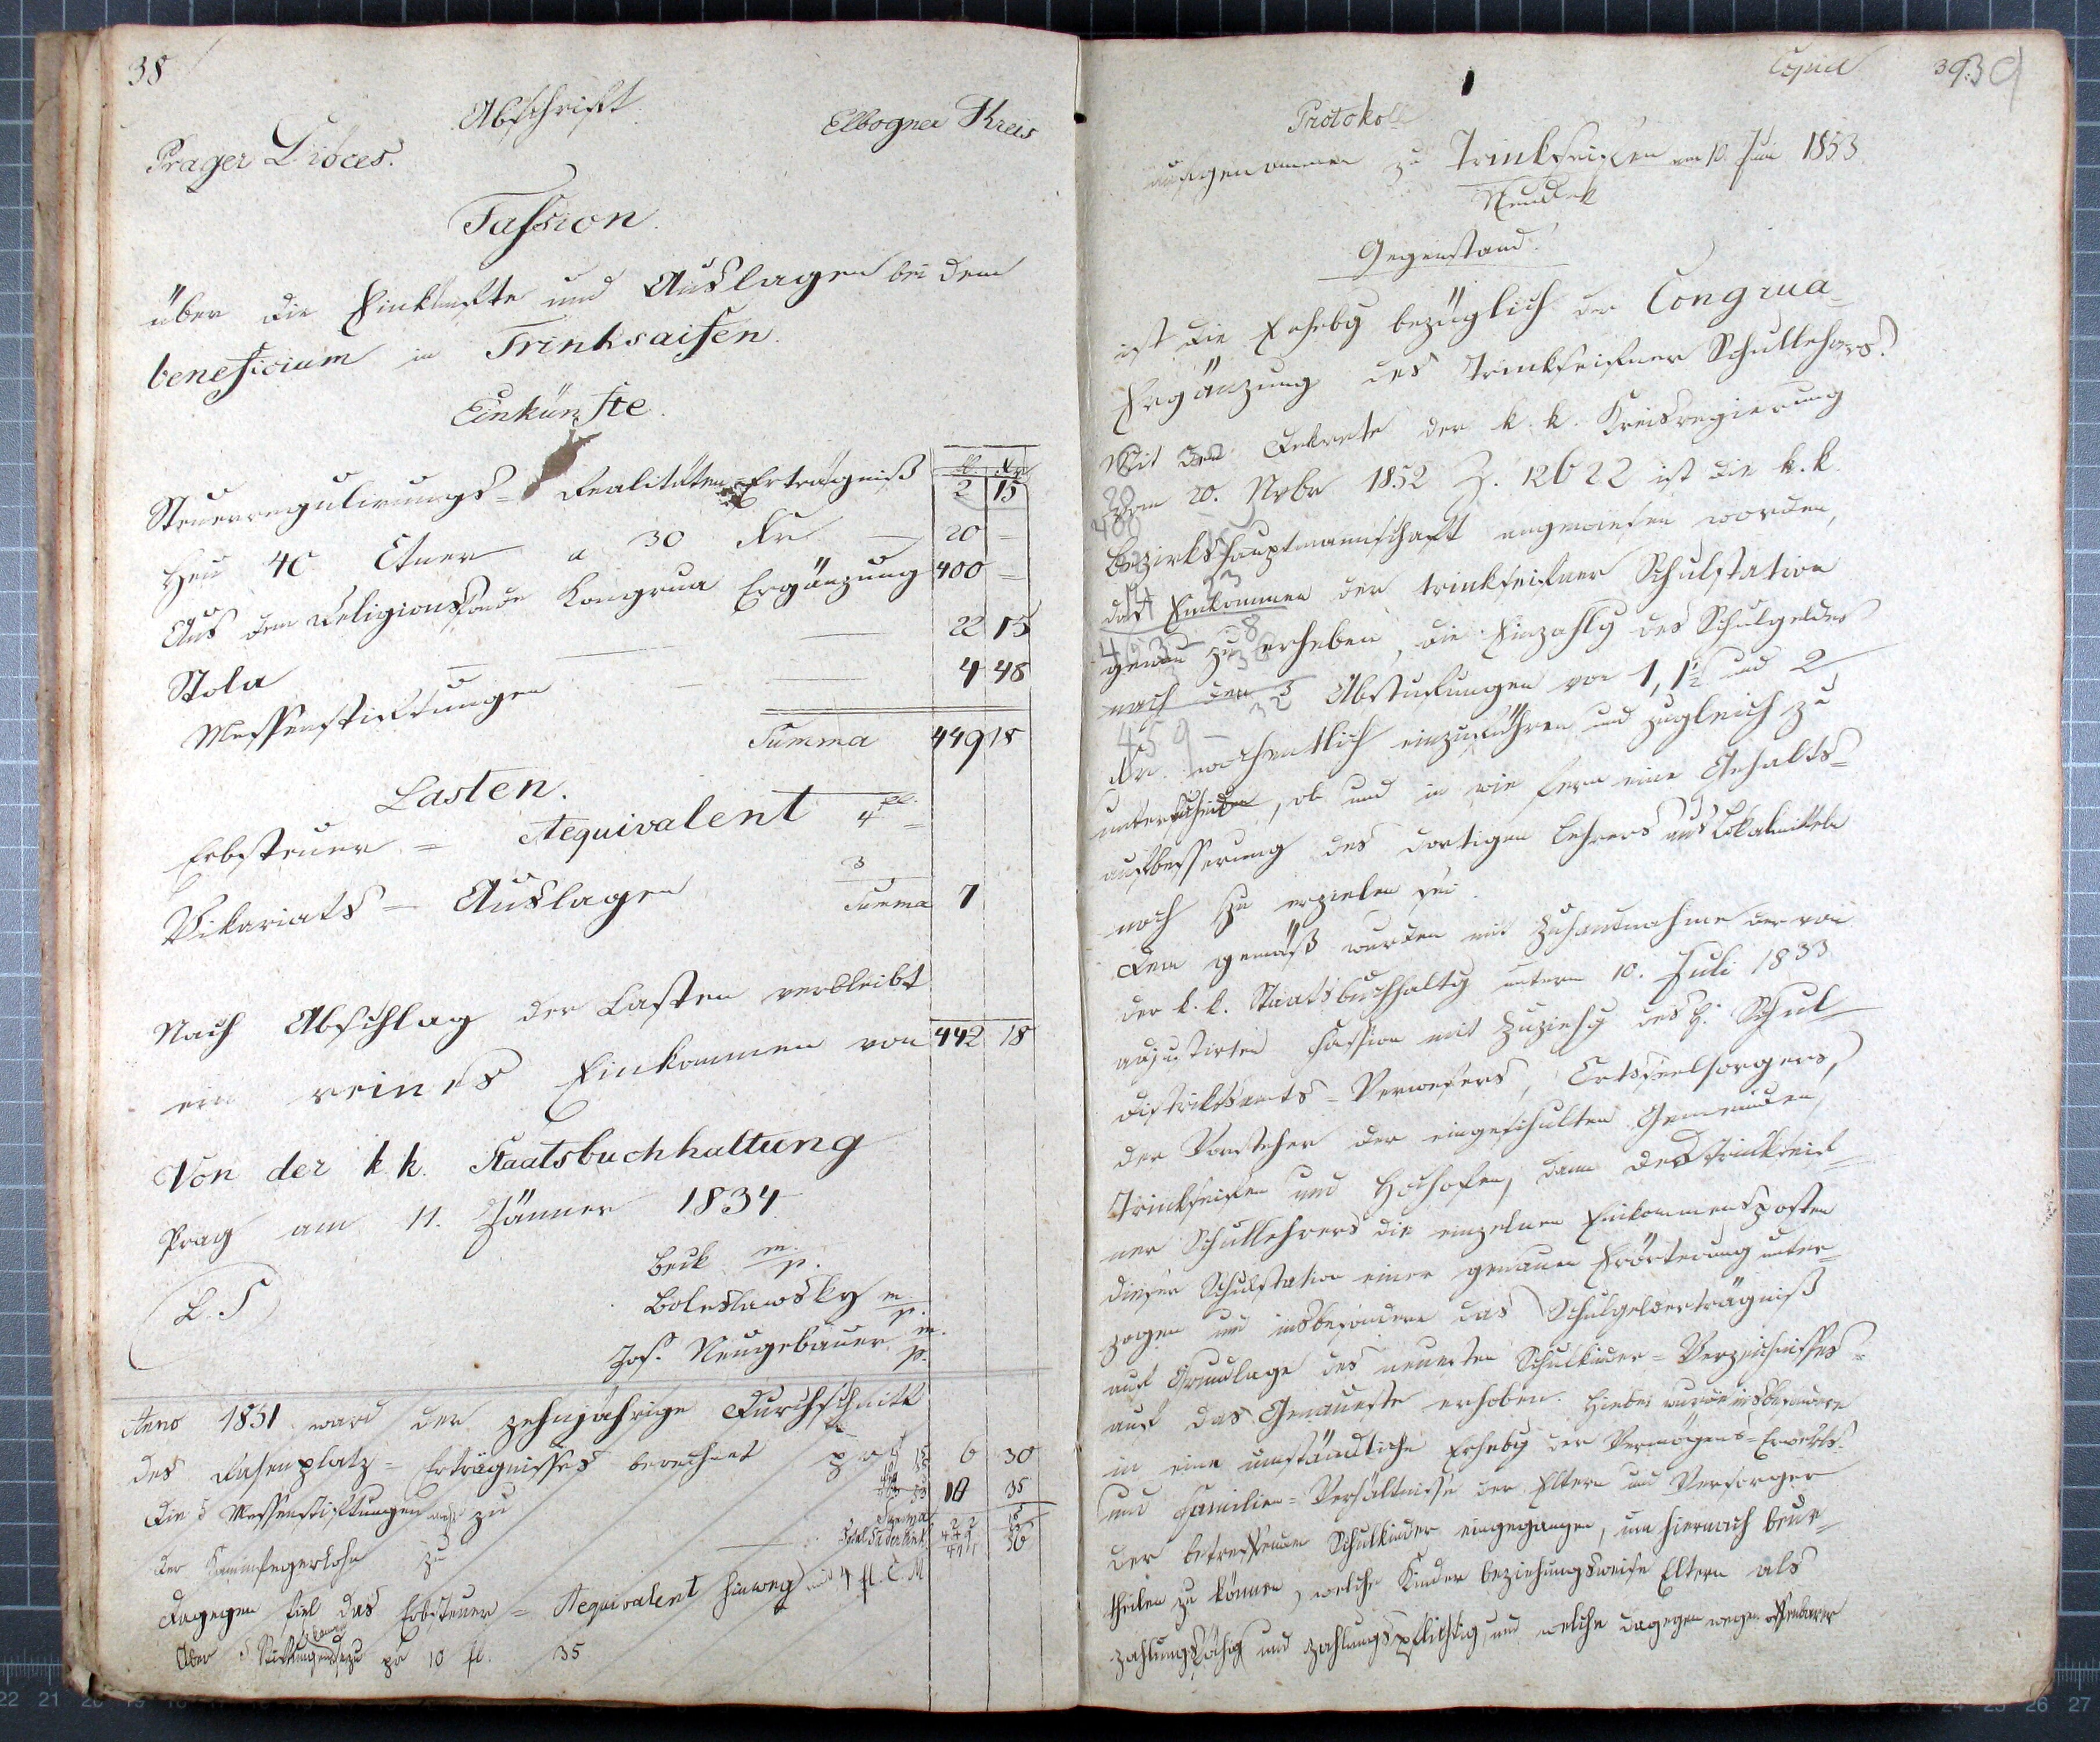 38
Abschrift.
Elbogner Kreis
Prager Diöces.
Fassion
über die Einkünfte und Auslagen bei dem
beneficium in Trinksaifen.
Einkünfte.
fl. Xr
Steuerregulirungs-Realitäten-Erträgniß 2 15
Heu 40 Ctner a 30 Xr — 20 —
Aus dem Religionsfonde Kongrua Ergänzung 400 —
Stola — 22 15
Messenstiftungen — 4 48
Summa 449 18
Lasten.
Erbsteuer = Aequivalent 4 fl. =
Vikariats = Auslagen 3
Summa 7
Nach Abschlag der Lasten verbleibt
ein reines Einkommen von 442 18
Von der k. k. Staatsbuchhaltung
Prag am 11. Jänner 1834
L. S
Beck m. p.
Boleslawsky m. p.
Jos. Neugebauer m. p.
Anno 1851 ward der zehnjährige Durchschnitt
des Erträgnisses berechnet pr 6 30
Die 5 Messenstiftungen zu 10 35
der zu
Summa
Dagegen fiel das Erbsteuer = Aequivalent hinweg mit 4 fl. C. M
Aber 5 Stiftungen dazu pr 10 fl. 35
Copia
39. 39
Protokoll
aufgenommen zu Trinkseifen am 10. Juni 1853.
Neudek
Gegenstand.
ist die Erhebg bezüglich der Congrua-
Ergänzung des Trinkseifner Schullehrers.
Mit dem Dekrete der k. k. Kreisregierung
vom 20. Nvbr 1852 Z. 12622 ist die k. k.
Bezirkshauptmannschaft angewiesen worden,
das Einkommen der trinkseifner Schulstation
genau zu erheben, die Einzahlg des Schulgeldes
nach den 3 Abstufungen von 1, 1½ und 2
Xr. wochentlich einzuführen und zugleich zu
untersuchen, ob und in wie fern eine Gehalts-
aufbesserung des dortigen Lehrers aus Lokalmitteln
noch zu erzielen sei.
Dem gemäß wurden mit Zuhandnahme der von
der k. k. Staatsbuchhaltg unterm 10. Juli 1833
adjustirten Fassion mit Zuziehg des H. Schul-
distriktsamts-Verwesers, Ortsseelsorgers,
der Vorsteher der eingeschulten Gemeinden
Trinkseifen und Hochofen, dann des Trinkseif-
ner Schullehrers die einzelnen Einkommensposten
dieser Schulstation einer genauen Erörterung unter-
zogen und insbesondere das Schulgelderträgniß
auf Grundlage des neuesten Schulkinder-Verzeichnisses
auf das Genaueste erhoben. Hiebei wurde insbesondere
in eine umständliche Erhebg der Vermögens-Erwerbs-
und Familien-Verhältnisse der Eltern und Versorger
der betreffenden Schulkinder eingegangen, um hiernach beur-
theilen zu können, welche Kinder beziehungsweise Eltern als
zahlungsfähig und zahlungspflichtig, und welche dagegen wegen offenbarer